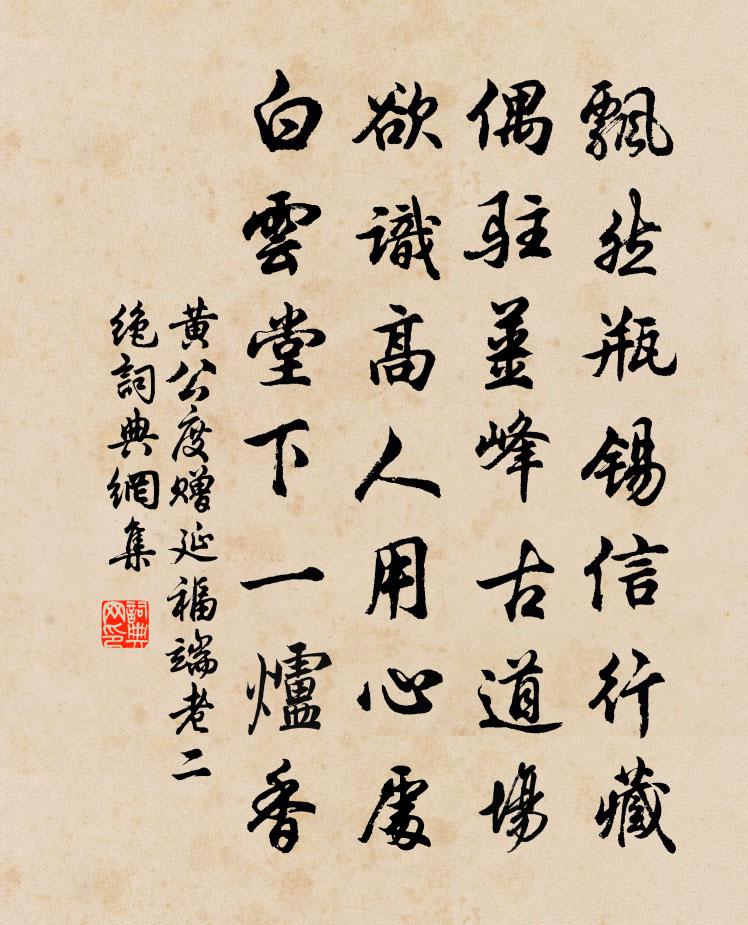 飄然瓶錫信行藏
偶駐薑峰古道場
欲識高人用心處
白雲堂下一爐香
黃公度贈延福端老二
絶詞典網集
詞典
网印